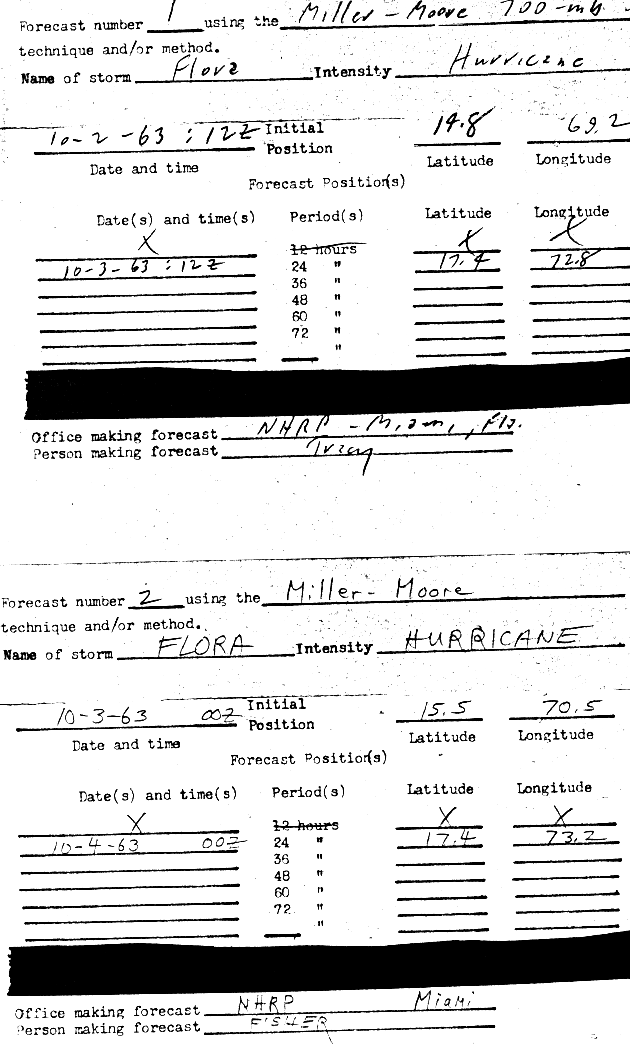 Forecast number 1 using the Miller - Moore 700-mb
technique and/or method.
Name of storm Flora Intensity Hurricane
10-2-63 : 12Z Initial Position 14.8 69.2
Date and time Latitude Longitude
Forecast Position(s)
Date(s) and time(s) Period(s) Latitude Longitude
X 12 hours X X
10-3-63 : 12Z 24 " 17.4 72.8
36 "
48 "
60 "
72 "
"
Office making forecast NHRP - Miami, Fla.
Person making forecast
Forecast number 2 using the Miller - Moore
technique and/or method.
Name of storm FLORA Intensity HURRICANE
10-3-63 00Z Initial Position 15.5 70.5
Date and time Latitude Longitude
Forecast Position(s)
Date(s) and time(s) Period(s) Latitude Longitude
X 12 hours X X
10-4-63 00Z 24 " 17.4 73.2
36 "
48 "
60 "
72 "
"
Office making forecast NHRP Miami
Person making forecast FISHER